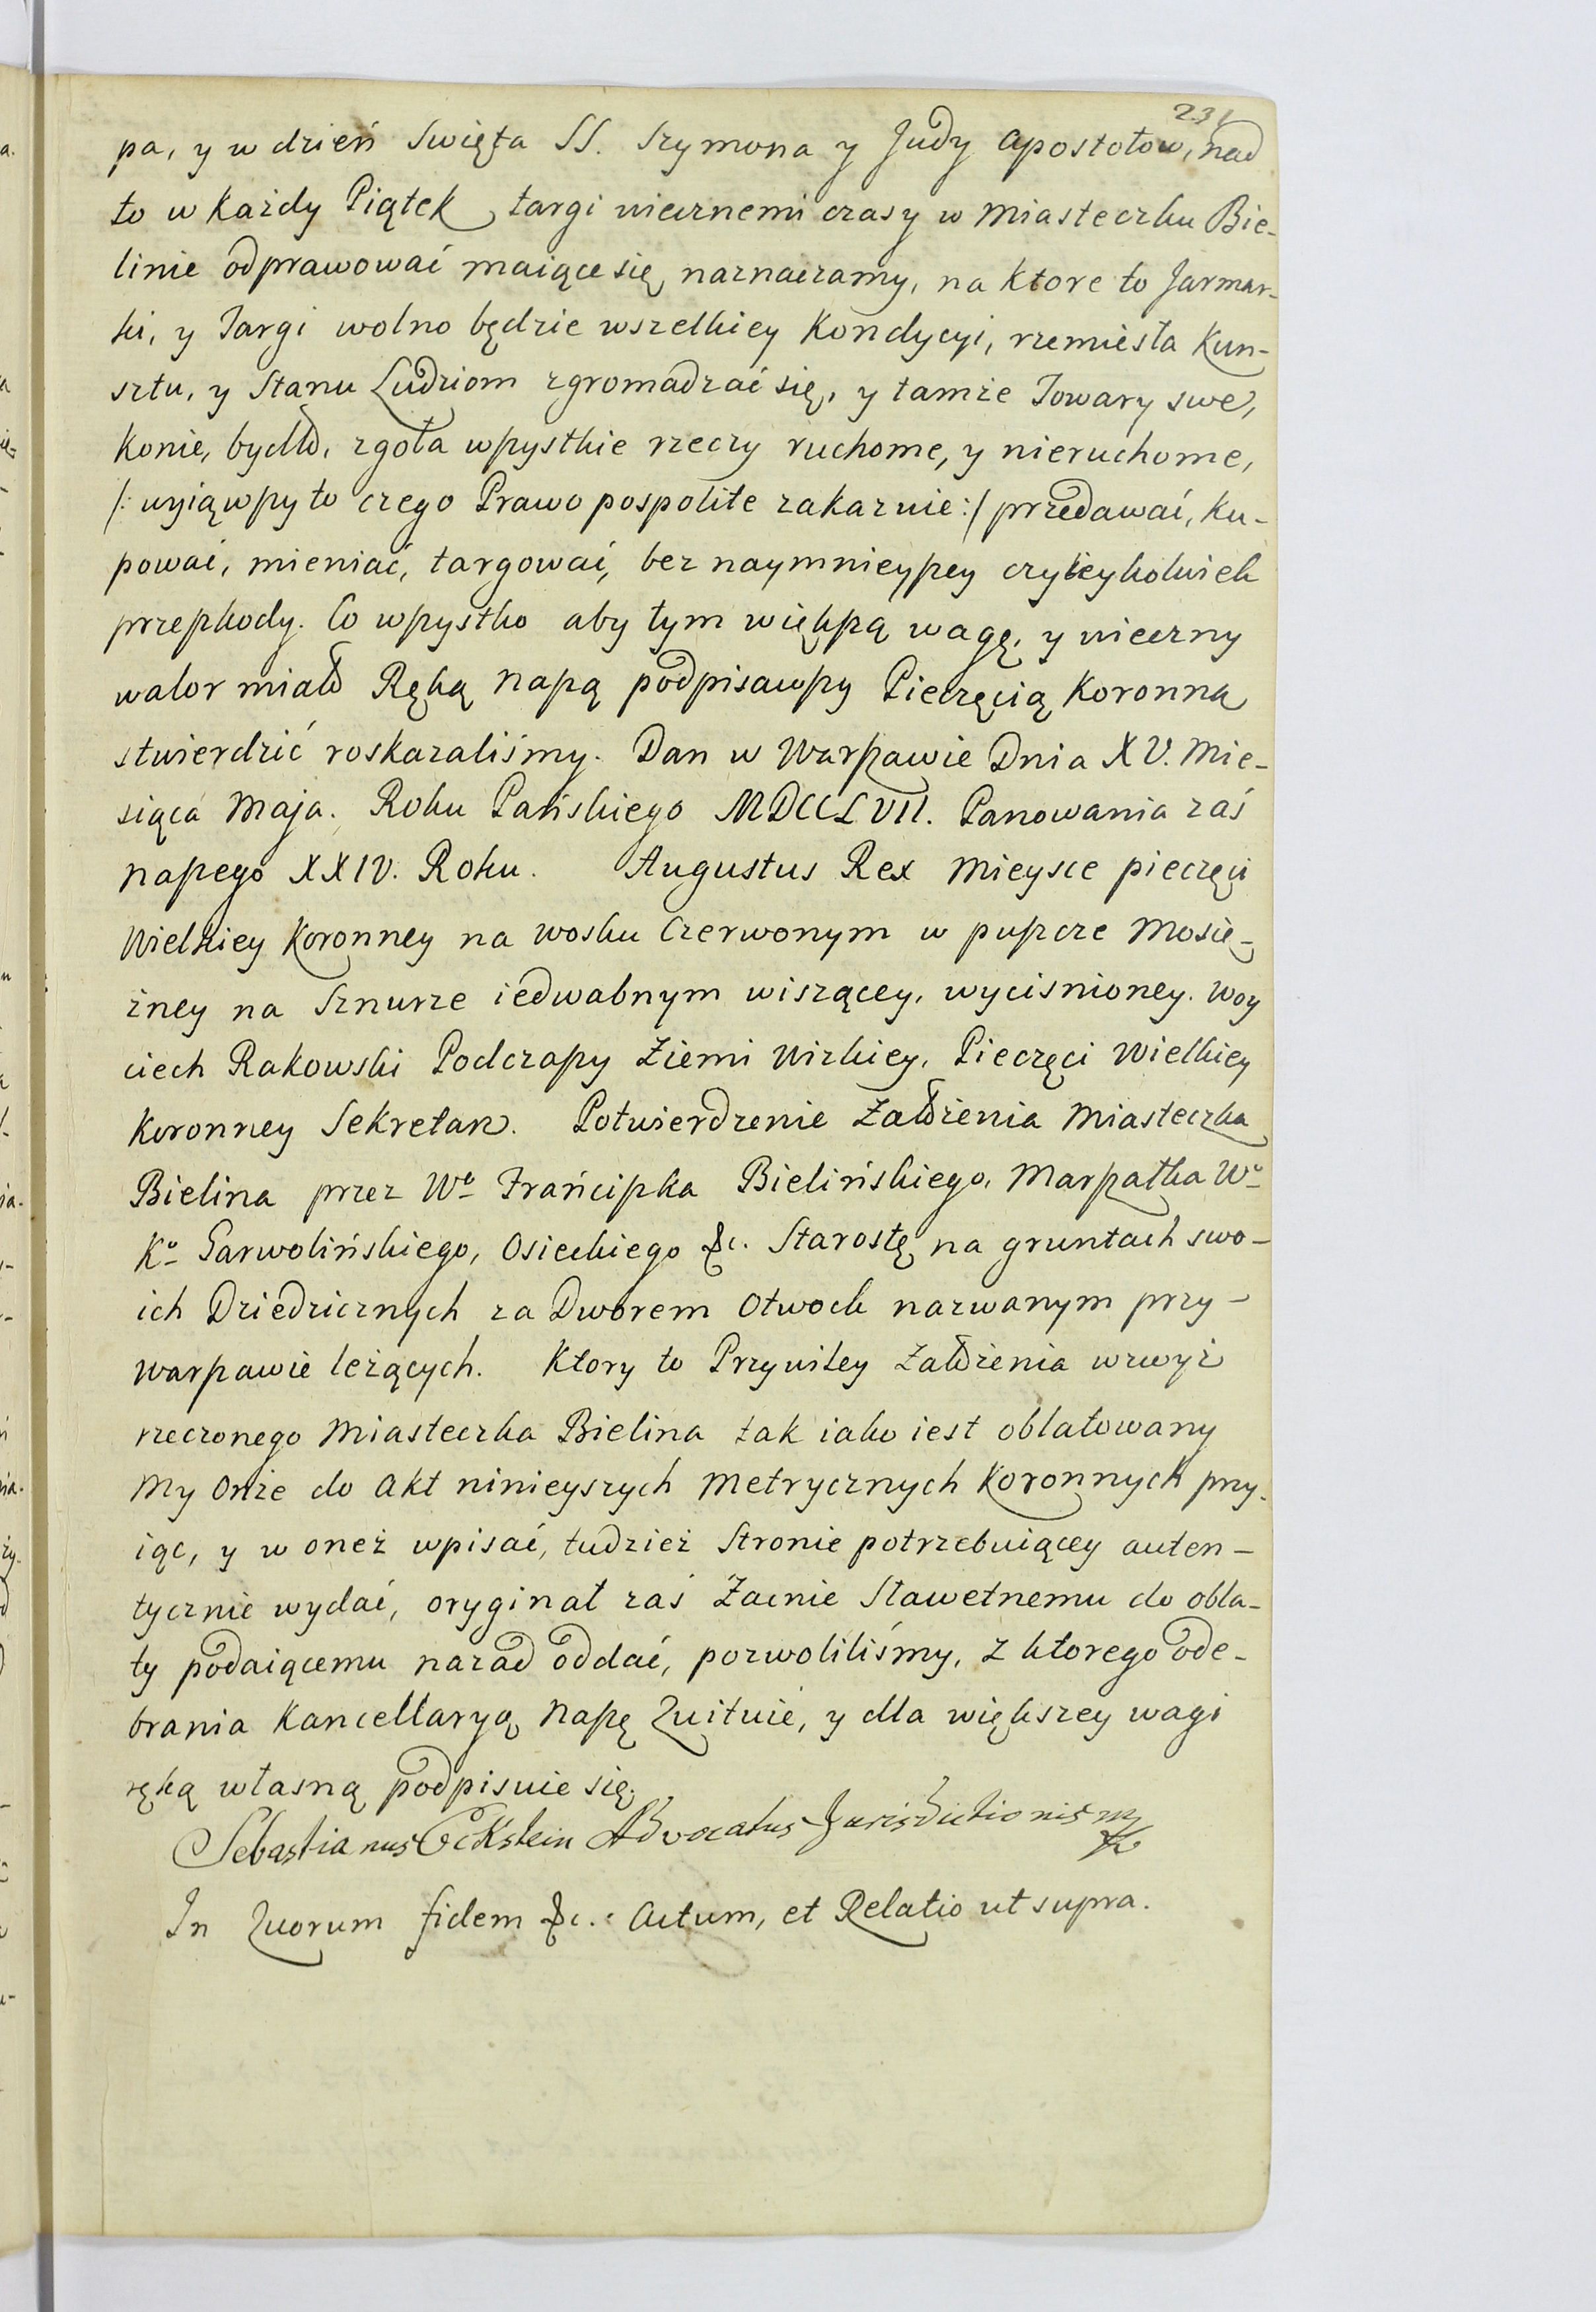 231
pa, y w dzień Swięta SS. Szymona y Judy Apostołow, nad
to w każdy Piątek, targi wiecznemi czasy w Miasteczku Bie-
linie odprawować maiące się, naznaczamy, na ktore to Jarmar-
ki, y Targi wolno będzie wszelkiey Kondycyi, rzemiesła Kun-
sztu, y Stanu Ludziom zgromadzać się, y tamże Towary swe,
Konie, bydło, zgoła wszystkie rzeczy ruchome, y nieruchome,
/: wyiąwszy to czego Prawo pospolite zakazuie :/ przedawać, ku-
pować, mieniać, targować, bez naymnieyszey czyieykolwiek
przeszkody. Co wszystko aby tym większą wagę, y wieczny
walor miało Ręką naszą podpisawszy Pieczęcią Koronną
stwierdzić roskazaliśmy. Dan w Warszawie Dnia XV. Mie-
siąca Maja. Roku Pańskiego MDCCLVII. Panowania zaś
naszego XXIV. Roku. Augustus Rex Mieysce pieczęci
Wielkiey Koronney na wosku Czerwonym w puszcze Mosię-
żney na Sznurze iedwabnym wiszącey, wycisnioney. Woy
ciech Rakowski Podczaszy Ziemi Wizkiey, Pieczęci Wielkiey
Koronney Sekretarz. Potwierdzenie Założenia Miasteczka
Bielina przez Wo Frańciszka Bielińskiego, Marszałka Wo
Ko Garwolińskiego, Osieckiego &c. Starostę na gruntach swo-
ich Dziedzicznych za Dworem Otwock nazwanym przy-
Warszawie leżących. Ktory to Przywiley Założenia wzwyż
rzeczonego Miasteczka Bielina tak iako iest oblatowany
My Onże do Akt ninieyszych Metrycznych Koronnych przy-
iąc, y w oneż wpisać, tudzież Stronie potrzebuiącey auten-
tycznie wydać, oryginał zaś Zacnie Sławetnemu do obla-
ty podaiącemu nazad oddać, pozwoliliśmy, z ktorego ode-
brania Kancellaryą naszę Quituie, y dla większey wagi
ręką własną podpisuie się.
Sebastianus Eckstein Advocatus Jurisdictionis
In Quorum fidem &c.: Actum, et Relatio ut supra.